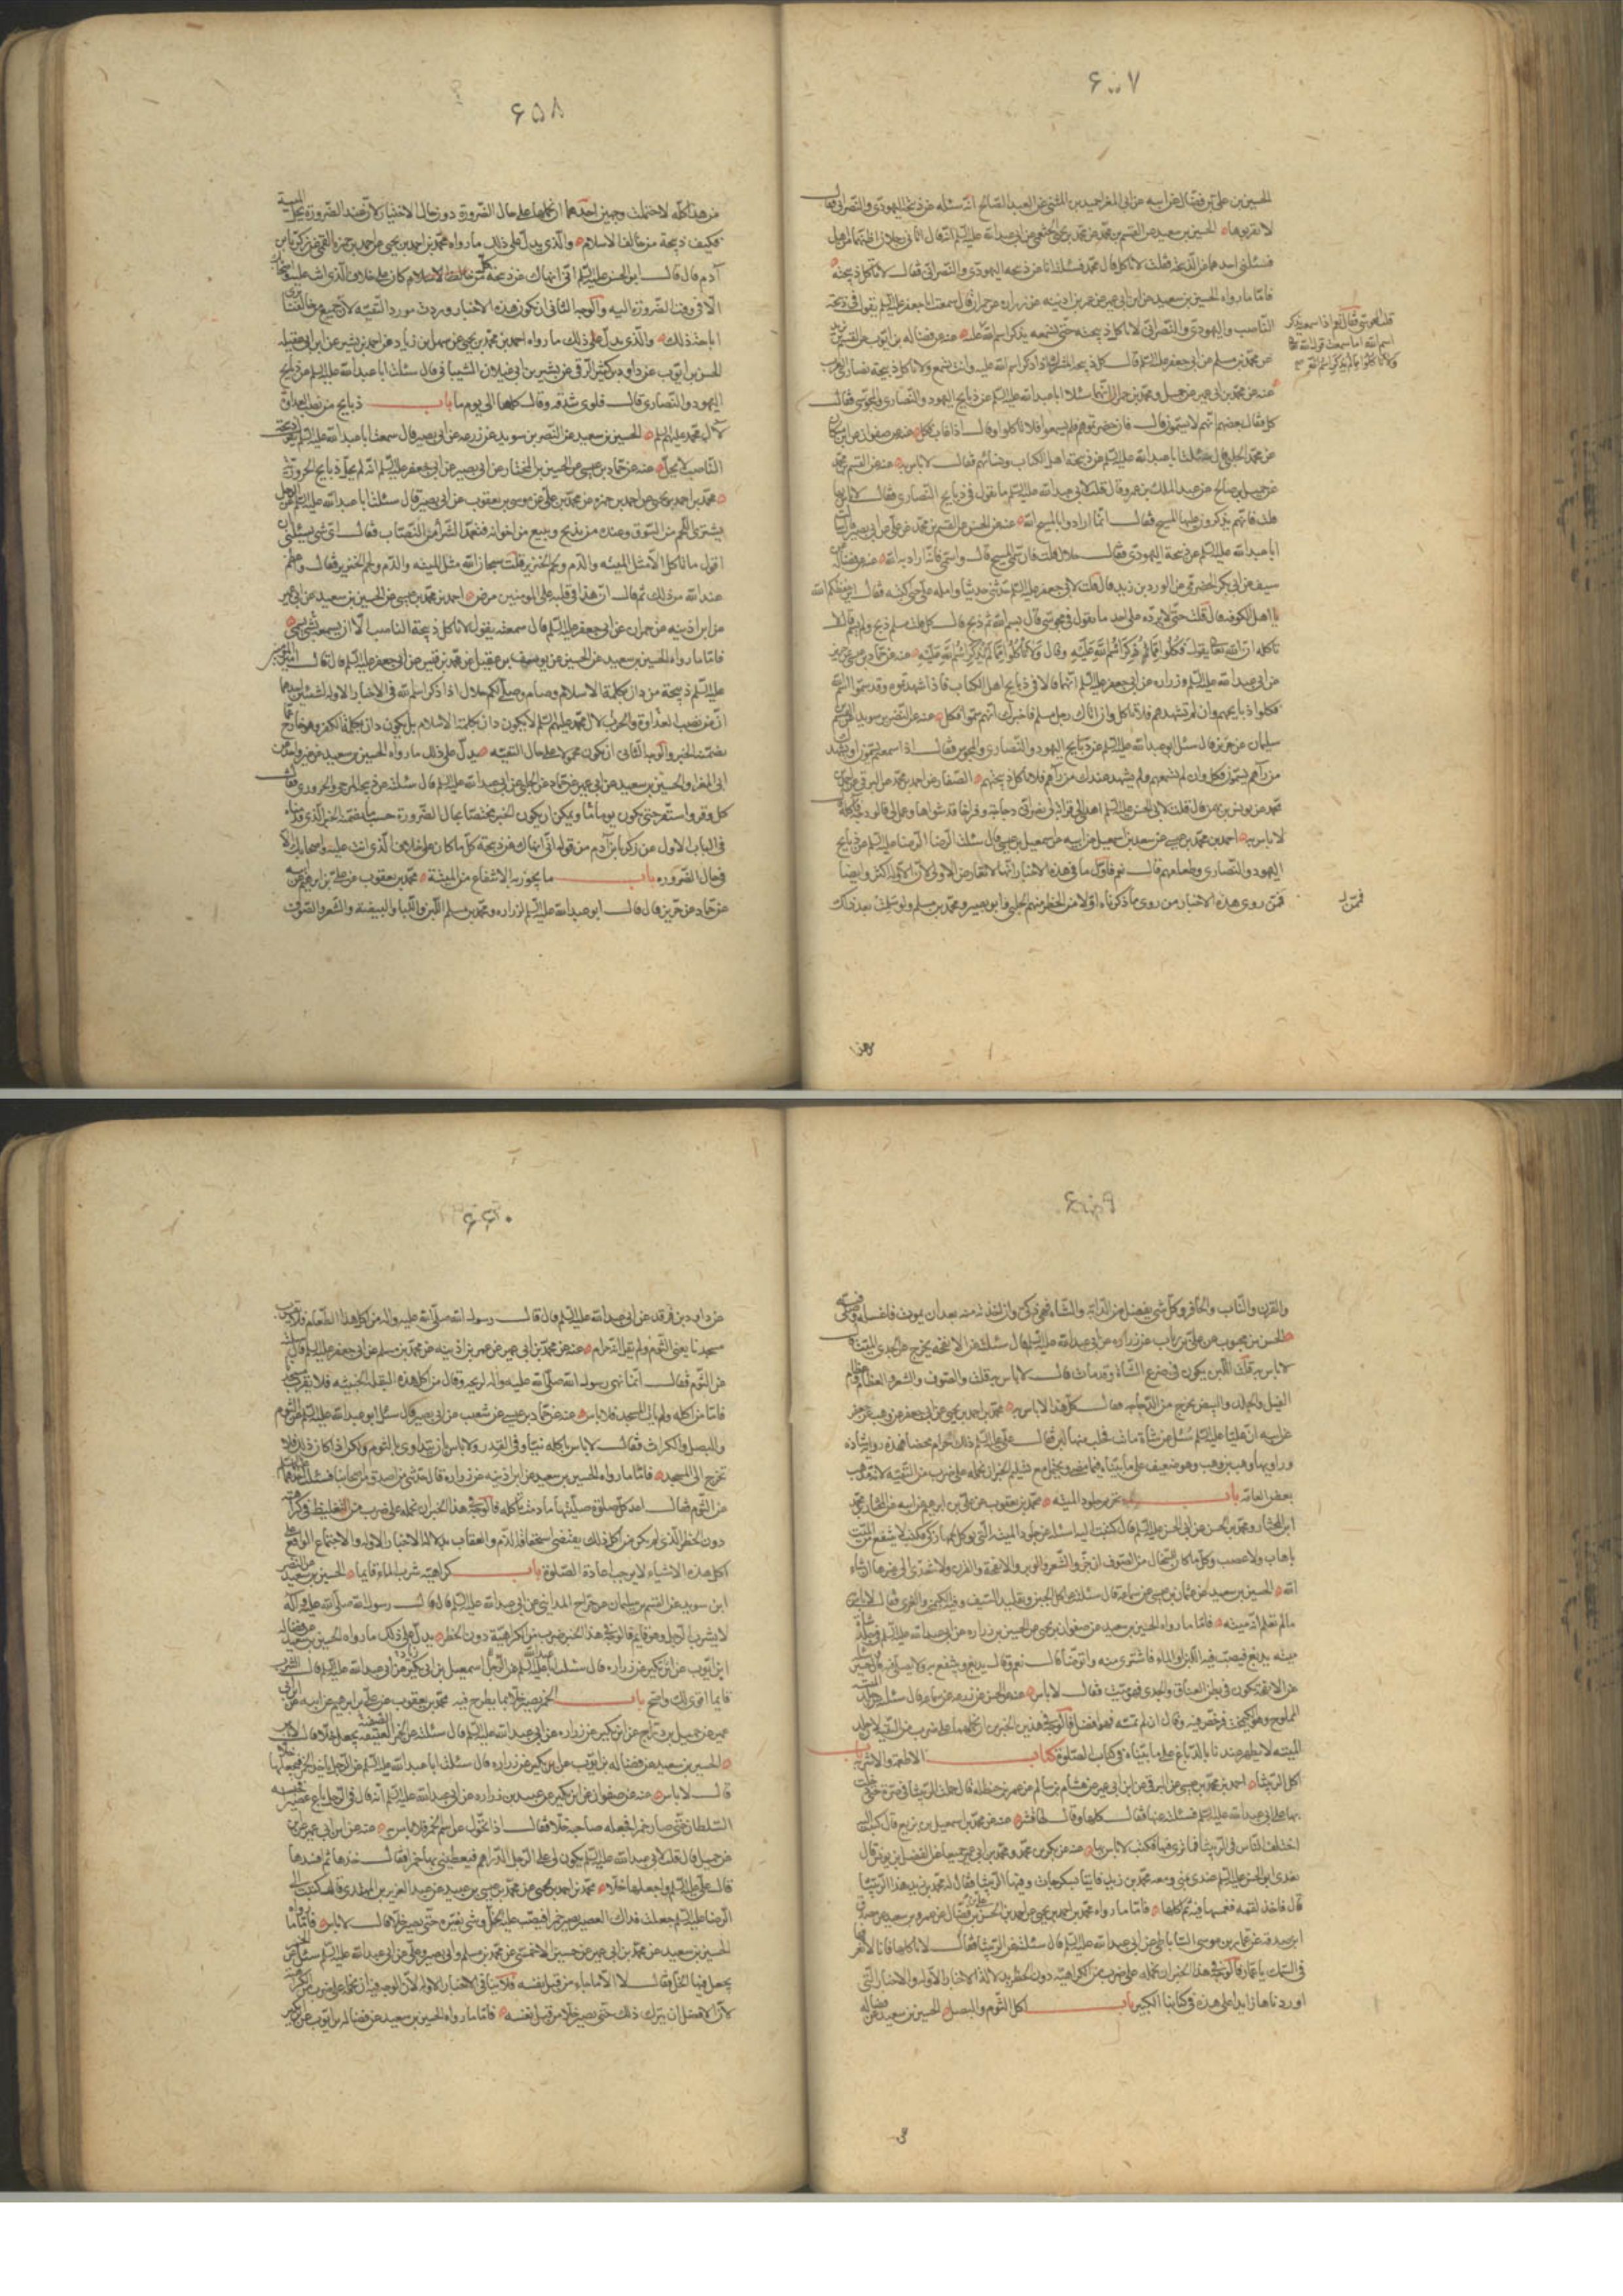 ۶۵۷
الحسين بن علي بن فضال عن ابيه عن ابي المغرا حميد بن المثنى عن العبد الصالح انه سئله عن ذبيحة اليهودي والنصراني فقال
لا تقربوها الحسين بن سعيد عن القسم بن محمد عن محمد بن يحيى الخثعمي عن ابي عبد الله عليه السلم انه قال اتاني رجلان اظنهما من اهل
فسئلني احدهما عن الذبيحة فقلت لا تاكل قال محمد فسئلته انا عن ذبيحة اليهودي والنصراني فقال لا تاكل ذبيحته
فاما ما رواه الحسين بن سعيد عن ابن ابي عمير عن عمر بن اذينه عن زراره عن حمران قال سمعت ابا جعفر عليه السلم يقول في ذبيحة
الناصب واليهودي والنصراني لا تاكل ذبيحته حتى تسمعه يذكر اسم الله عليه عنه عن فضاله بن ايوب عن القسم بن بريد
عن محمد بن مسلم عن ابي جعفر عليه السلم قال كل ذبيحة المشرك اذا ذكر اسم الله عليه وانت تسمع ولا تاكل ذبيحة نصارى العرب
عنه عن محمد بن ابي عمير عن جميل ومحمد بن حمران انهما سئلا ابا عبد الله عليه السلم عن ذبايح اليهود والنصارى والمجوس فقال
كل فقال بعضهم انهم لا يسمون قال فان حضرتموهم فلم يسموا فلا تاكلوا وقال اذا غاب فكل عنه عن صفوان عن ابن مسكان
عن محمد الحلبي قال سئلت ابا عبد الله عليه السلم عن ذبيحة اهل الكتاب ونسائهم فقال لا باس به عنه عن القسم بن محمد
عن جميل بن صالح عن عبد الملك بن عمرو قال قلت لابي عبد الله عليه السلم ما تقول في ذبايح النصارى فقال لا باس بها
قلت فانهم يذكرون عليها المسيح فقال انما ارادوا بالمسيح الله عنه عن الحسن عن القسم بن محمد عن علي عن ابي بصير قال سئلت
ابا عبد الله عليه السلم عن ذبيحة اليهودي فقال حلال قلت فان سمى المسيح قال وان سمى فانه اراد به الله عنه عن فضاله عن
سيف عن ابي بكر الحضرمي عن الورد بن زيد قال قلت لابي جعفر عليه السلم حدثني حديثا وامله علي حتى اكتبه فقال اين حفظكم
يا اهل الكوفة قال قلت حتى لا يرده علي احد ما تقول في مجوسي قال بسم الله ثم ذبح فقال كل قلت مسلم ذبح ولم يسم فقال لا
تاكله ان الله تعالى يقول فكلوا مما ذكر اسم الله عليه وقال ولا تاكلوا مما لم يذكر اسم الله عليه عنه عن حماد بن عيسى عن حريز
عن ابي عبد الله عليه السلم وزراره عن ابي جعفر عليه السلم انهما قالا في ذبايح اهل الكتاب فاذا شهدتموهم وقد سموا اسم الله
فكلوا ذبايحهم وان لم تشهدهم فلا تاكل وان اتاك رجل مسلم فاخبرك انهم سموا فكل عنه عن النضر بن سويد عن القسم بن
سليمان عن حريز قال سئل ابو عبد الله عليه السلم عن ذبايح اليهود والنصارى والمجوس فقال اذا سمعتهم يسمون او شهد لك
من رآهم يسمون فكل وان لم تسمعهم ولم يشهد عندك من رآهم فلا تاكل ذبيحتهم الصفار عن احمد بن محمد عن البرقي عن احمد بن
محمد عن يونس بن بهمن قال قلت لابي الحسن عليه السلم اهدى الي قرابة لي نصراني دجاجا وفراخا قد شواها وعمل لي فالوذجة فاكله
لا باس به احمد بن محمد بن عيسى عن سعد بن اسمعيل عن ابيه اسمعيل بن عيسى قال سئلت الرضا عليه السلم عن ذبايح
اليهود والنصارى وطعامهم قال نعم فاول ما في هذه الاخبار انها لا تقابل الاولة لان الاولة اكثر وايضا
فممن روى هذه الاخبار من روى ما ذكرناه اولا من الحظر منهم الحلبي وابو بصير ومحمد بن مسلم ولو سلمت بعد ذلك
من هذا
۶۵۸
من هذا كله لاحتملت وجهين احدهما ان نحملها على حال الضرورة دون حال الاختيار لان عند الضرورة تحل الميتة
فكيف ذبيحة من خالف الاسلام والذي يدل على ذلك ما رواه محمد بن احمد بن يحيى عن احمد بن حمزه القمي عن زكريا بن
آدم قال قال ابو الحسن عليه السلم اني انهاك عن ذبيحة كل من كان على خلاف الذي انت عليه واصحابك
الا في وقت الضرورة اليه والوجه الثاني ان تكون هذه الاخبار وردت مورد التقيه لان جميع من خالفنا يرى
اباحة ذلك والذي يدل على ذلك ما رواه احمد بن محمد بن يحيى عن سهل بن زياد عن احمد بن بشير عن ابن ابي عقيله
الحسن بن ايوب عن داود بن كثير الرقي عن بشير بن ابي غيلان الشيباني قال سئلت ابا عبد الله عليه السلم عن ذبايح
اليهود والنصارى قال فلوى شدقه وقال كلها الى يوم ما باب ذبايح من نصب العداوة
لآل محمد عليهم السلم الحسين بن سعيد عن النضر بن سويد عن زرعه عن ابي بصير قال سمعت ابا عبد الله عليه السلم يقول ذبيحة
الناصب لا تحل عنه عن حماد بن عيسى عن الحسين بن المختار عن ابي بصير عن ابي جعفر عليه السلم انه لم يحل ذبايح الحرورية
محمد بن احمد بن يحيى عن احمد بن حمزه عن محمد بن علي عن موسى بن يعقوب عن ابي بصير قال سئلت ابا عبد الله عليه السلم عن الرجل
يشتري اللحم من السوق وعنده من يذبح ويبيع من اخوانه فتعمد الشراء من النصاب فقال اي شي تسئلني
اقول ما تاكل الا مثل الميته والدم ولحم الخنزير قلت سبحان الله مثل الميته والدم ولحم الخنزير فقال واعظم
عند الله من ذلك ثم قال ان هذا في قلبه على المومنين مرض احمد بن محمد بن عيسى عن الحسين بن سعيد عن ابن ابي عمير
عن ابن اذينه عن حمران عن ابي جعفر عليه السلم قال سمعته يقول لا تاكل ذبيحة الناصب الا ان تسمعه يسمي
فاما ما رواه الحسين بن سعيد عن الحسين عن يوسف بن عقيل عن محمد بن قيس عن ابي جعفر عليه السلم قال قال امير المؤمنين
عليه السلم ذبيحة من دان بكلمة الاسلام وصام وصلى لكم حلال اذا ذكر اسم الله
يدل على ذلك ما رواه الحسين بن سعيد
كل وقر واستقر حتى يكون يوما ما ويمكن ان يكون الخبر مختصا بحال الضرورة حسب ما تضمنه الخبر الذي قدمناه
في الباب الاول عن زكريا بن آدم من قوله اني انهاك عن ذبيحة كل ما كان على خلاف الذي انت عليه واصحابك الا
في حال الضروره باب ما يجوز به الانتفاع من الميتة محمد بن يعقوب عن علي بن ابرهيم عن ابيه
عن حماد عن حريز قال قال ابو عبد الله عليه السلم لزراره ومحمد بن مسلم اللبن واللبا والبيضة والشعر والصوف
۶۵۹
والقرن والناب والحافر وكل شي يفصل من الدابة والشاة فهو ذكي وان اخذته منه بعد ان يموت فاغسله وصل فيه
الحسن بن محبوب عن علي بن رياب عن زراره عن ابي عبد الله عليه السلم قال سئلته عن الانفحة يخرج من الجدي الميت قال
لا باس به قلت اللبن يكون في ضرع الشاة وقد ماتت قال لا باس به قلت والصوف والشعر والعظام عظام
الفيل والجلد والبيض يخرج من الدجاجه فقال كل هذا لا باس به محمد بن احمد بن يحيى عن ابي جعفر عن وهب عن جعفر
عن ابيه ان عليا عليه السلم سئل عن شاة ماتت فحلب منها لبن فقال علي عليه السلم ذلك الحرام محضا فهذه رواية شاذه
بعض العامه باب تحريم جلود الميته محمد بن يعقوب عن علي بن ابرهيم عن ابيه عن المختار بن محمد
ابن المختار ومحمد بن الحسن عن ابي الحسن عليه السلم قال كتبت اليه اسئله عن جلود الميته التي يوكل لحمها ان ذكي فكتب لا ينتفع من الميت
باهاب ولا عصب وكل ما كان من السخال من الصوف ان جز والشعر والوبر والانفحة والقرن ولا يتعدى الى غيرها ان شاء
الله الحسين بن سعيد عن عثمان بن عيسى عن سماعه قال سئلته عن اكل الجبن وتقليد السيف وفيه الكيمخت والفرى فقال لا باس
ما لم تعلم انه ميته فاما ما رواه الحسين بن سعيد عن صفوان بن يحيى عن الحسين بن زراره عن ابي عبد الله عليه السلم في جلد شاة
ميته يدبغ فيصب فيه اللبن او الماء فاشرب منه واتوضأ قال نعم وقال يدبغ وينتفع به ولا يصلى فيه
عن الانفحة تكون في بطن العناق والجدي فهو ميت فقال لا باس عنه عن الحسن عن زرعه عن سماعه قال سئلته عن جلد الميته
المملوح وهو الكيمخت فرخص فيه وقال ان لم تمسه فهو افضل فالوجه في هذين الخبرين ان نحملهما على ضرب من التقيه لان جلد
الميته لا يطهر عندنا بالدباغ على ما بيناه في كتاب الصلوة كتاب الاطعمة والاشربة باب
اكل الربيثا احمد بن محمد بن عيسى عن البرقي عن ابن ابي عمير عن هشام بن سالم عن عمر بن حنظله قال حملت الربيثا في صرة حتى دخلت
بها على ابي عبد الله عليه السلم فسئلته عنها فقال كلها وقال لها قشر عنه عن محمد بن اسمعيل بن بزيع قال كتبت اليه
اختلف الناس في الربيثا فما تامرني فيها فكتب لا باس بها عنه عن بكر بن محمد ومحمد بن ابي عمير جميعا عن الفضل بن يونس قال
تغدى ابو الحسن عليه السلم عندي بمنى ومعه محمد بن زيد فاتينا بسكرجات وفيها الربيثا فقال له محمد بن زيد هذا الربيثا
قال فاخذ لقمه فغمسها فيه ثم اكلها فاما ما رواه محمد بن احمد بن يحيى عن احمد بن الحسن بن علي بن فضال عن عمرو بن سعيد عن مصدق
ابن صدقه عن عمار بن موسى الساباطي عن ابي عبد الله عليه السلم قال سئلته عن الربيثا فقال لا تاكلها فانا لا نعرفها
في السمك يا عمار فالوجه في هذا الخبر ان نحمله على ضرب من الكراهية دون الحظر بدلالة الاخبار الاولة والاخبار التي
اوردناها زايدا على هذه في كتابنا الكبير باب اكل الثوم والبصل الحسين بن سعيد عن فضاله
عن
۶۶۰
عن داود بن فرقد عن ابي عبد الله عليه السلم قال قال رسول الله صلى الله عليه واله من اكل هذا الطعام فلا يقرب
مسجدنا يعني الثوم ولم يقل انه حرام عنه عن محمد بن ابي عمير عن عمر بن اذينه عن محمد بن مسلم عن ابي جعفر عليه السلم قال سئلته
عن الثوم فقال انما نهى رسول الله صلى الله عليه واله لريحه وقال من اكل هذه البقلة الخبيثه فلا يقرب مسجدنا
فاما من اكله ولم يات المسجد فلا باس عنه عن حماد بن عيسى عن شعيب عن ابي بصير قال سئل ابو عبد الله عليه السلم عن الثوم
والبصل والكراث فقال لا باس باكله نيا وفي القدر ولا باس بان يتداوى بالثوم ولكن اذا كان ذلك فلا
تخرج الى المسجد فاما ما رواه الحسين بن سعيد عن ابن اذينه عن زراره قال حدثني من اصدق من اصحابنا قال سئلت احدهما
عن الثوم فقال اعد كل صلوة صليتها ما دمت تاكله فالوجه في هذا الخبر ان نحمله على ضرب من التغليظ في كراهته
دون الحظر الذي لم يكن من اكل ذلك يقتضي استحقاق الذم والعقاب بدلالة الاخبار الاوله والاجماع الواقع على
اكل هذه الاشياء لا يوجب اعادة الصلوة باب كراهية شرب الماء قايما الحسين بن سعيد عن النضر
ابن سويد عن القسم بن سليمان عن جراح المدايني عن ابي عبد الله عليه السلم قال قال رسول الله صلى الله عليه واله
لا يشرب الرجل وهو قايم فالوجه في هذا الخبر ضرب من الكراهية دون الحظر يدل على ذلك ما رواه الحسين بن سعيد عن فضاله
قايما اقوى لك واصح باب الخمر يصير خلا بما يطرح فيه محمد بن يعقوب عن علي بن ابرهيم عن ابيه عن ابن ابي
عمير عن جميل بن دراج عن ابن بكير عن زراره عن ابي عبد الله عليه السلم قال سئلته عن الخمر العتيقه يجعل خلا قال لا باس
الحسين بن سعيد عن فضاله بن ايوب عن ابن بكير عن زراره قال سئلت ابا عبد الله عليه السلم عن الرجل ياخذ الخمر فيجعلها خلا
قال لا باس عنه عن صفوان عن ابن بكير عن عبيد بن زراره عن ابي عبد الله عليه السلم انه قال في الرجل باع عصيرا فحبسه
السلطان حتى صار خمرا فجعله صاحبه خلا فقال اذا تحول عن اسم الخمر فلا باس به عنه عن ابن ابي عمير عن
عن جميل قال قلت لابي عبد الله عليه السلم يكون لي على الرجل الدراهم فيعطيني بها خمرا فقال خذها ثم افسدها
قال علي عليه السلم واجعلها خلا محمد بن احمد بن يحيى عن محمد بن عيسى بن عبيد عن عبد العزيز بن المهتدي قال كتبت الى
الرضا عليه السلم جعلت فداك العصير يصير خمرا فيصب عليه الخل وشي يغيره حتى يصير خلا قال لا باس به فاما ما رواه
الحسين بن سعيد عن محمد بن ابي عمير عن حسين الاحمسي عن محمد بن مسلم وابي بصير وعلي عن ابي عبد الله عليه السلم سئل عن الخمر
يجعل فيها الخل فقال لا الا ما جاء من قبل نفسه فلا ينافي الاخبار الاوله لان الوجه فيه ان نحمله على ضرب من الكراهية
لان الافضل ان يترك ذلك حتى يصير خلا من قبل نفسه فاما ما رواه الحسين بن سعيد عن فضاله بن ايوب عن ابن بكير